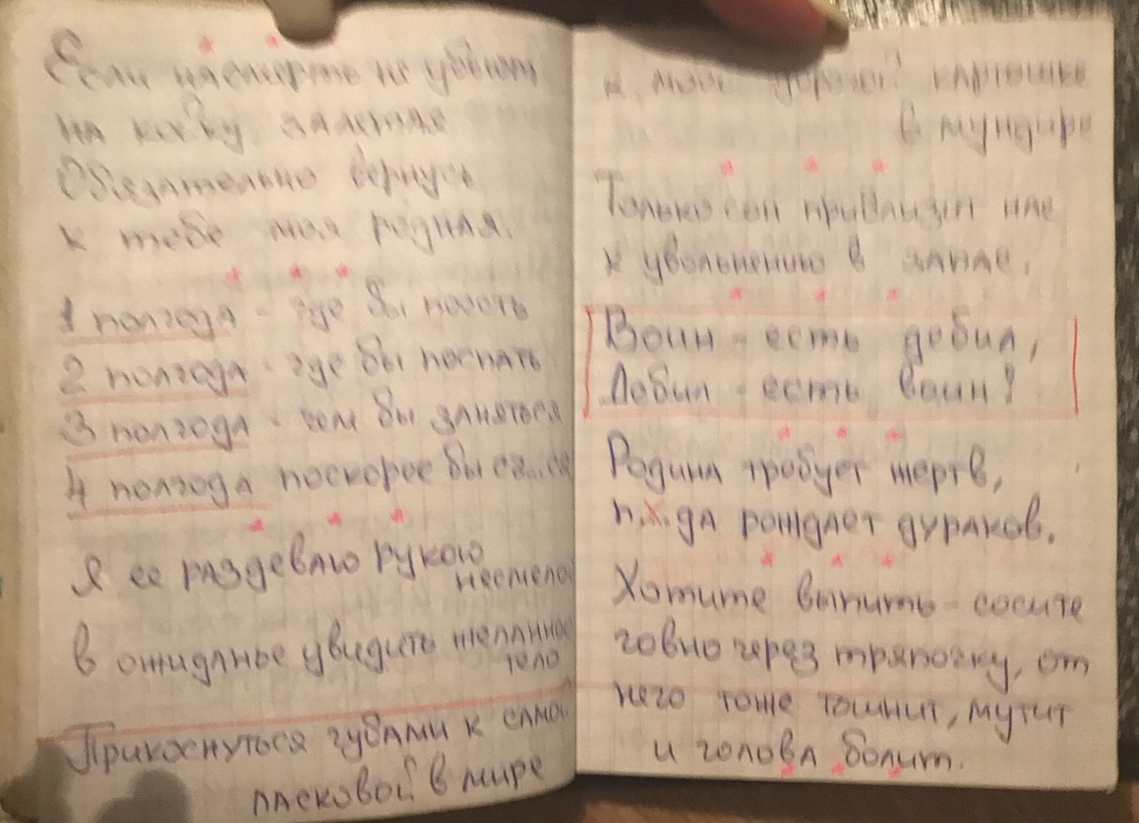 Если насмерть не убьют
на койку залетая
Обязательно вернусь
к тебе моя родная.
1 полгода - где бы поесть
2 полгода - где бы поспать
3 полгода - чем бы заняться
4 полгода поскорее бы
Я ее раздеваю рукою
несмело
в ожиданье увидить желанное
тело
Прикоснуться губами к самой
ласковой в мире
к моей дорогой картошке
в мундире
Только сон приблизит нас
к увольнению в запас.
Воин - есть дебил,
Дебил - есть воин!
Родина требует жертв,
п.х.да рождает дураков.
Хотите выпить - сосите
говно через тряпочку, от
него тоже тошнит, мутит
и голова болит.